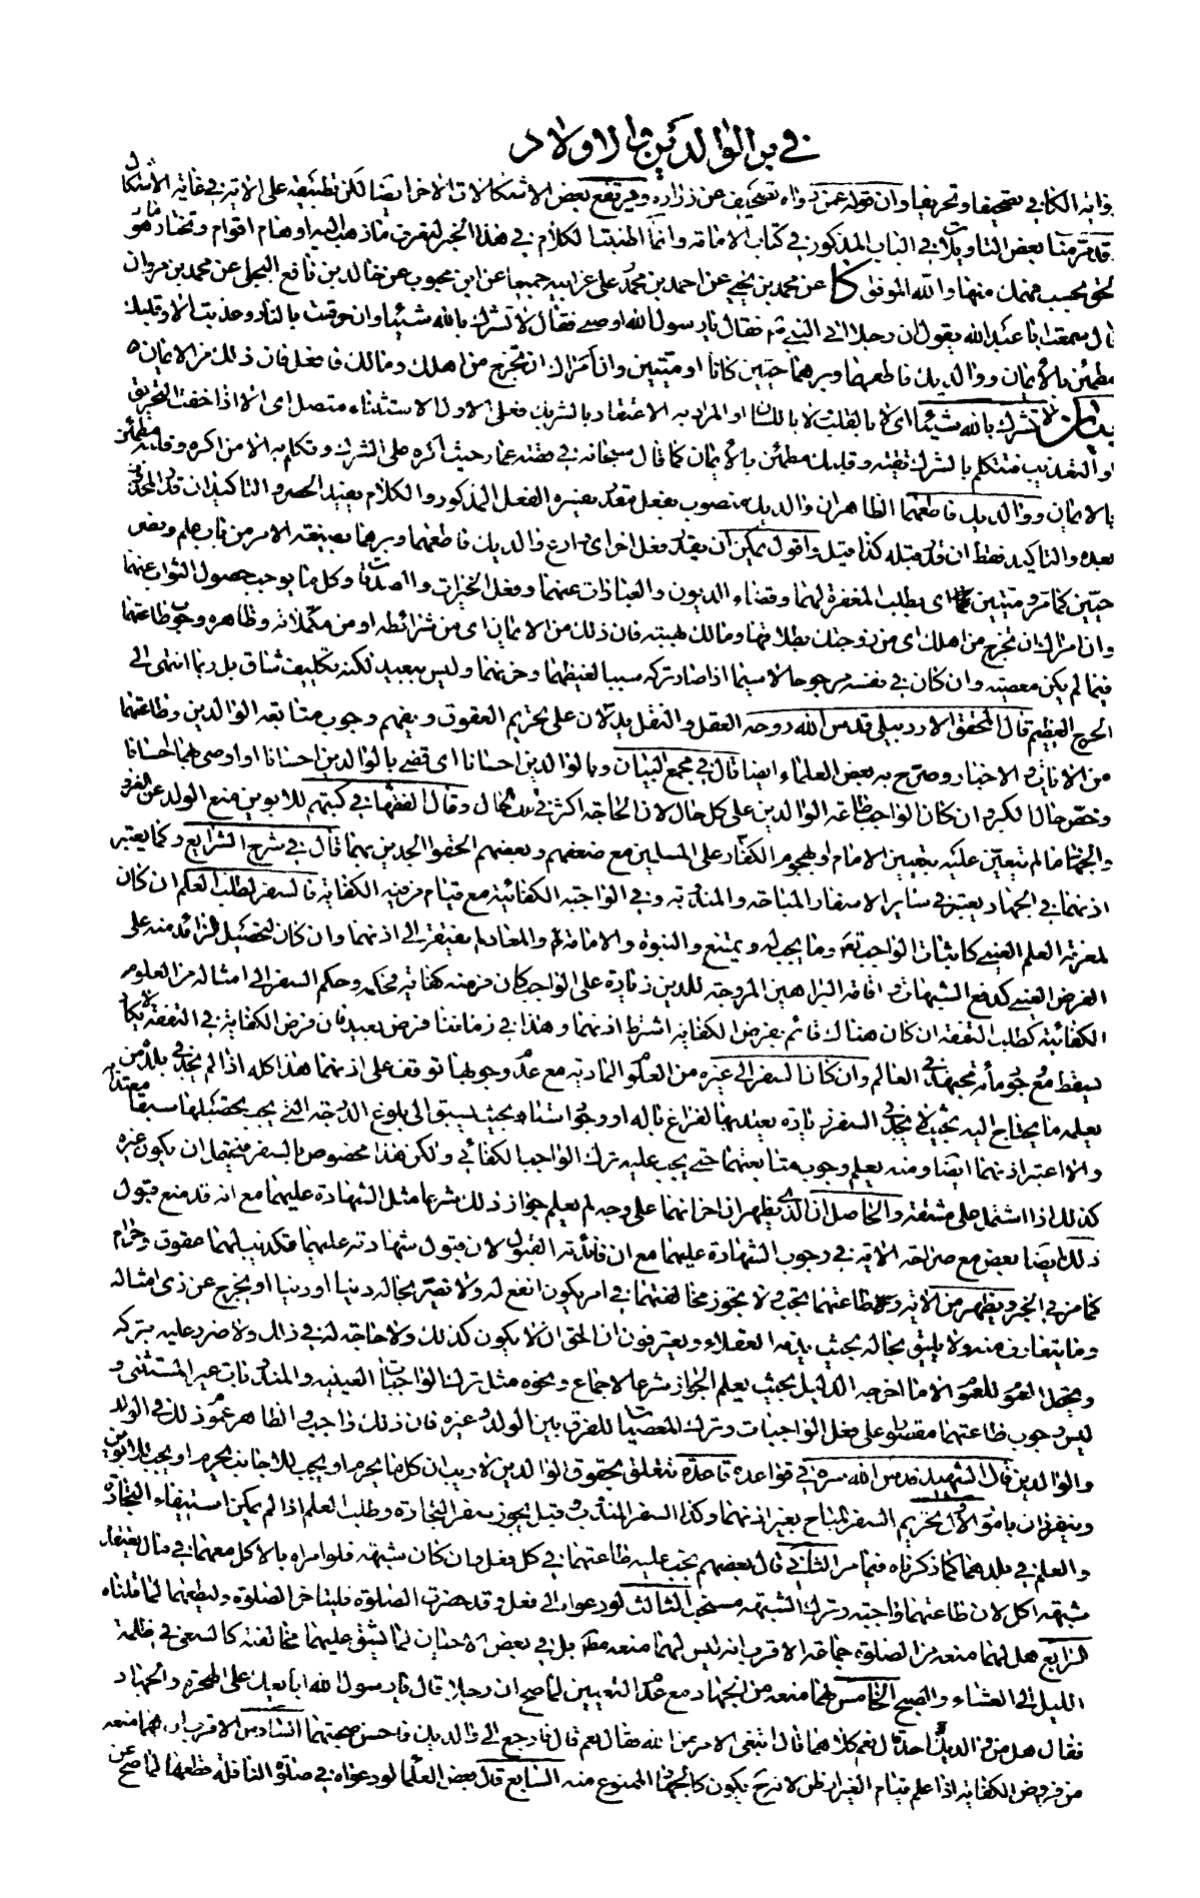 في بر الوالدين والاولاد
رواية الكافي تصحيفا وتحريفا وان قوله عمن رواه تصحيف عن زرارة ويرتفع بعض الاشكالات الاخر ايضا لكن تطبيقه على الاية في غاية الاشكال
قد مر منا بعض التاويلات في الباب المذكور في كتاب الامامة وانما اطنبنا الكلام في هذا الخبر لتعرف ما ذهب اليه اوهام اقوام وتختار ما هو
الحق بحسب فهمك منها والله الموفق كا عن محمد بن يحيى عن احمد بن محمد وعلي عن ابيه جميعا عن ابن محبوب عن خالد بن نافع البجلي عن محمد بن مروان
قال سمعت ابا عبد الله يقول ان رجلا اتى النبي ص فقال يا رسول الله اوصني فقال لا تشرك بالله شيئا وان حرقت بالنار وعذبت الا وقلبك
مطمئن بالايمان ووالديك فاطعهما وبرهما حيين كانا او ميتين وان امراك ان تخرج من اهلك ومالك فافعل فان ذلك من الايمان
بيان لا تشرك بالله شيئا اي لا بالقلب ولا باللسان او المراد به الاعتقاد بالشريك فعلى الاول الاستثناء متصل اي الا اذا خفت التحريق
او التعذيب فتتكلم بالشرك تقية وقلبك مطمئن بالايمان كما قال سبحانه في قصة عمار حيث اكره على الشرك وتكلم به الا من اكره وقلبه مطمئن
بالايمان ووالديك فاطعهما الظاهر ان والديك منصوب بفعل مقدر يفسره الفعل المذكور والكلام يفيد الحصر والتاكيد ان قدر المحذوف
بعده والتاكيد فقط ان قدر قبله كذا قيل واقول يمكن ان يقدر فعل اخر اي وارع والديك فاطعهما وبرهما بصيغة الامر من باب علم ونصر
حيين كما مر وميتين اي بطلب المغفرة لهما وقضاء الديون والعبادات عنهما وفعل الخيرات والصدقات وكل ما يوجب حصول الثواب عنهما
وان امراك ان تخرج من اهلك اي من زوجتك بطلاقها ومالك بهبته فان ذلك من الايمان اي من شرائطه او من مكملاته وظاهره وجوب طاعتهما
فيما لم يكن معصية وان كان في نفسه مرجوحا لا سيما اذا صار تركه سببا لغيظهما وحزنهما وليس ببعيد لكنه تكليف شاق بل ربما انتهى الى
الحرج العظيم قال المحقق الاردبيلي قدس الله روحه العقل والنقل يدلان على تحريم العقوق ويفهم وجوب متابعة الوالدين وطاعتهما
من الايات والاخبار وصرح به بعض العلماء ايضا قال في مجمع البيان وبالوالدين احسانا اي قضى بالوالدين احسانا او اوصى بهما احسانا
وخص حال الكبر وان كان الواجب طاعة الوالدين على كل حال لان الحاجة اكثر في تلك الحال وقال الفقهاء في كتبهم للابوين منع الولد عن الغزو
والجهاد ما لم يتعين عليه بتعيين الامام او بهجوم الكفار على المسلمين مع ضعفهم وبعضهم الحقوا الجدين بهما قال في شرح الشرايع وكما يعتبر
اذنهما في الجهاد يعتبر في ساير الاسفار المباحة والمندوبة وفي الواجبة الكفائية مع قيام من فيه الكفاية فالسفر لطلب العلم ان كان
لمعرفة العلم العيني كاثبات الواجب تعالى وما يجب له ويمتنع والنبوة والامامة والمعاد لم يفتقر الى اذنهما وان كان لتحصيل الزائد منه على
الفرض العيني كدفع الشبهات واقامة البراهين المروجة للدين زيادة على الواجب كان فرضه كفاية فحكمه وحكم السفر الى امثاله من العلوم
الكفائية كطلب التفقه ان كان هناك قائم بفرض الكفاية اشترط اذنهما وهذا في زماننا فرض بعيد فان فرض الكفاية في التفقه لا يكاد
يسقط مع وجود مأة مجتهد في العالم وان كان السفر الى غيره من العلوم المادية مع عدم وجوبها توقف على اذنهما هذا كله اذا لم يجد في بلده من
يعلمه ما يحتاج اليه بحيث لا يجد في السفر زيادة يعتد بها لفراغ باله او وجود استاد بحيث يسبق الى بلوغ الدرجة التي يجب تحصيلها سبقا معتدا به
والا اعتبر اذنهما ايضا ومنه يعلم وجوب متابعتهما حتى يجب عليه ترك الواجب الكفائي ولكن هذا مخصوص بالسفر فيحتمل ان يكون غيره
كذلك اذا اشتمل على مشقة والحاصل ان الذي يظهر ان احزانهما على وجه لم يعلم جواز ذلك شرعا مثل الشهادة عليهما مع انه قد منع قبول
ذلك ايضا بعض مع صراحة الاية في وجوب الشهادة عليهما مع ان فائدته القبول لان قبول شهادته عليهما تكذيب لهما عقوق وحرام
كما مر في الخبر ويظهر من الاية وطاعتهما تجب ولا تجوز مخالفتهما في امر يكون انفع له ولا يضر بحاله دينا او دنيا او يخرج عن زي امثاله
وما يتعارف منه ولا يليق بحاله بحيث يذمه العقلاء ويعترفون ان الحق ان لا يكون كذلك ولا حاجة له في ذلك ولا ضرر عليه بتركه
ويحتمل العموم للعموم الا ما اخرجه الدليل بحيث يعلم الجواز شرعا لاجماع ونحوه مثل ترك الواجبات العينية والمندوبات غير المستثنى و
ليس وجوب طاعتهما مقصورا على فعل الواجبات وترك المعصيات للفرق بين الولد وغيره فان ذلك واجب والظاهر عموم ذلك في الولد
والوالدين قال الشهيد قدس الله سره في قواعده قاعدة تتعلق بحقوق الوالدين لا ريب ان كل ما يحرم او يجب للاجانب يحرم او يجب للابوين
وينفردان بامور الاول تحريم السفر المباح بغير اذنهما وكذا السفر المندوب وقيل يجوز سفر التجارة وطلب العلم اذا لم يمكن استيفاء التجارة
والعلم في بلدهما كما ذكرناه فيما مر الثاني قال بعضهم تجب عليه طاعتهما في كل فعل وان كان شبهة فلو امراه بالاكل معهما في مال يعتقده
شبهة اكل لان طاعتهما واجبة وترك الشبهة مستحب الثالث لو دعواه الى فعل وقد حضرت الصلوة فليتاخر الصلوة وليطعهما لما قلناه
الرابع هل لهما منعه من الصلوة جماعة الاقرب انه ليس لهما منعه مط بل في بعض الاحيان لما يشق عليهما مخالفته كالسعي في ظلمة
الليل الى العشاء والصبح الخامس لهما منعه من الجهاد مع عدم التعيين لما صح ان رجلا قال يا رسول الله ابايعك على الهجرة والجهاد
فقال هل من والديك احد قال نعم كلاهما قال اتبغي الاجر من الله فقال نعم قال فارجع الى والديك فاحسن صحبتهما السادس الاقرب ان لهما منعه
من فروض الكفاية اذا علم قيام الغير او ظن لانه ح يكون كالجهاد الممنوع منه السابع قال بعض العلماء لو دعواه في صلوة النافلة قطعها لما صح عن